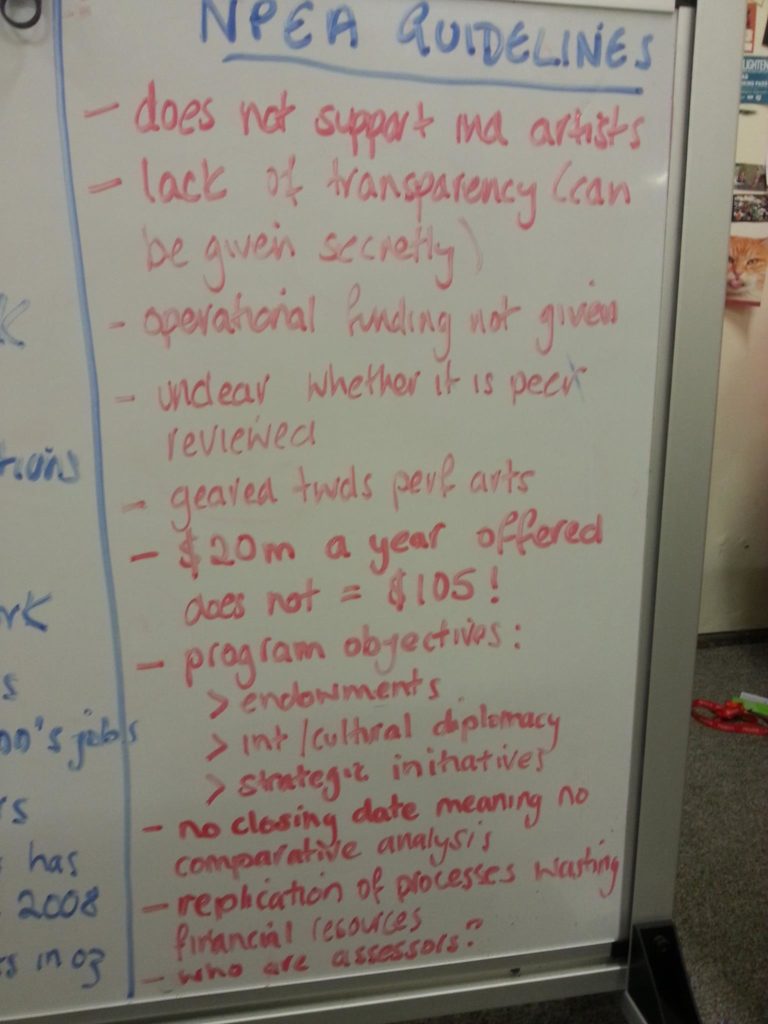 NPEA GUIDELINES
- does not support ind artists
- lack of transparency (can
be given secretly)
- operational funding not given
- unclear whether it is peer
reviewed
- geared twds perf arts
- $20m a year offered
does not = $105!
- program objectives:
> endowments
> int/cultural diplomacy
> strategic initiatives
- no closing date meaning no
comparative analysis
- replication of processes wasting
financial resources
- who are assessors?
K
rk
s
's jobs
rs
has
2008
s in oz